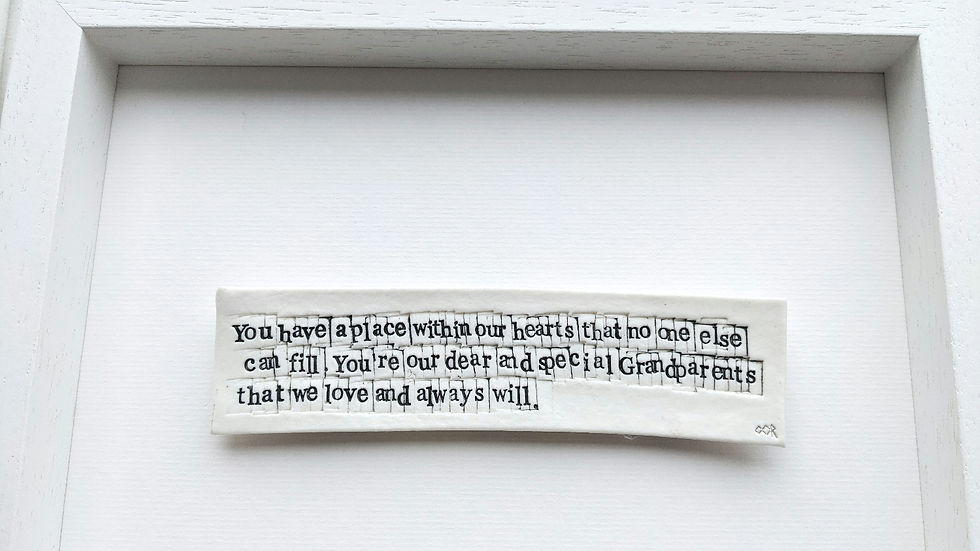 You have a place within our hearts that no one else
can fill. You're our dear and special Grandparents
that we love and always will.